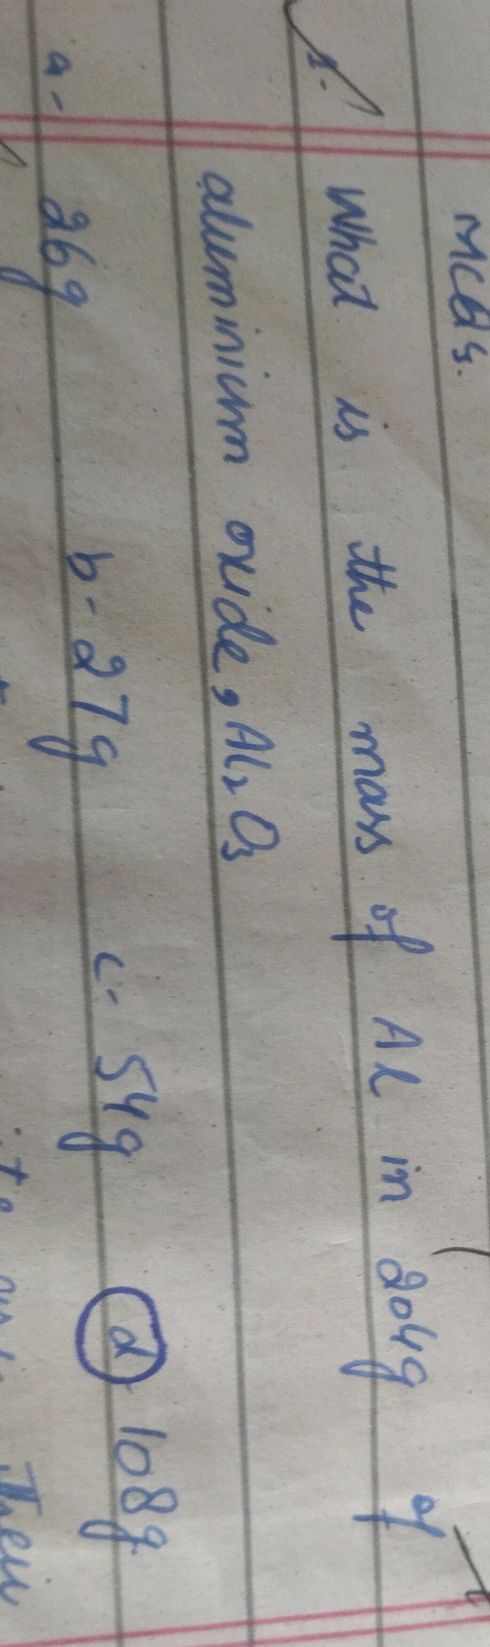 MCQs.
1. What is the mass of Al in 204g of
aluminium oxide, Al₂O₃
a- 26g b- 27g c- 54g d- 108g
Then